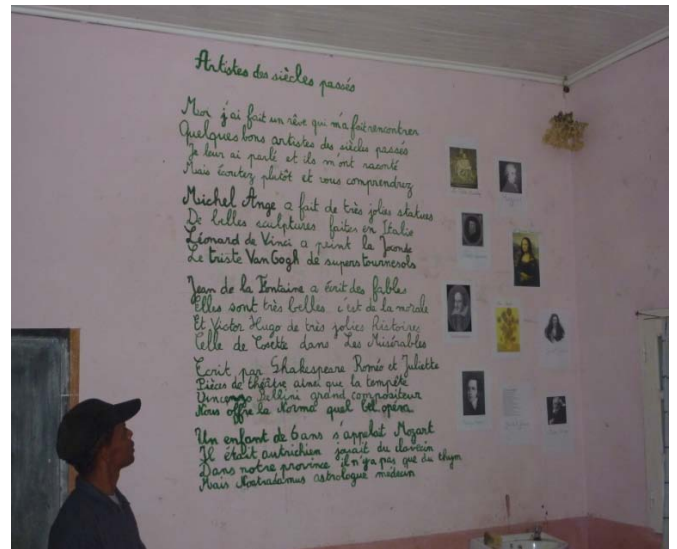 Artistes des siècles passés
Moi j'ai fait un rêve qui m'a fait rencontrer
Quelques bons artistes des siècles passés
Je leur ai parlé et ils m'ont raconté
Mais écoutez plutôt et vous comprendrez
Michel Ange a fait de très jolies statues
De belles sculptures faites en Italie
Léonard de Vinci a peint la Joconde
Le triste Van Gogh de supers tournesols
Jean de la Fontaine a écrit des fables
Elles sont très belles c'est de la morale
Et Victor Hugo de très jolies histoires
Celle de Cosette dans Les Misérables
Ecrit par Shakespeare Roméo et Juliette
Pièces de théâtre ainsi que la tempête
Vincenzo Bellini grand compositeur
Nous offre la Norma quel bel opéra
Un enfant de 6 ans s'appelait Mozart
Il était autrichien jouait du clavecin
Dans notre province il n'y a pas que du thym
Mais Nostradamus astrologue médecin